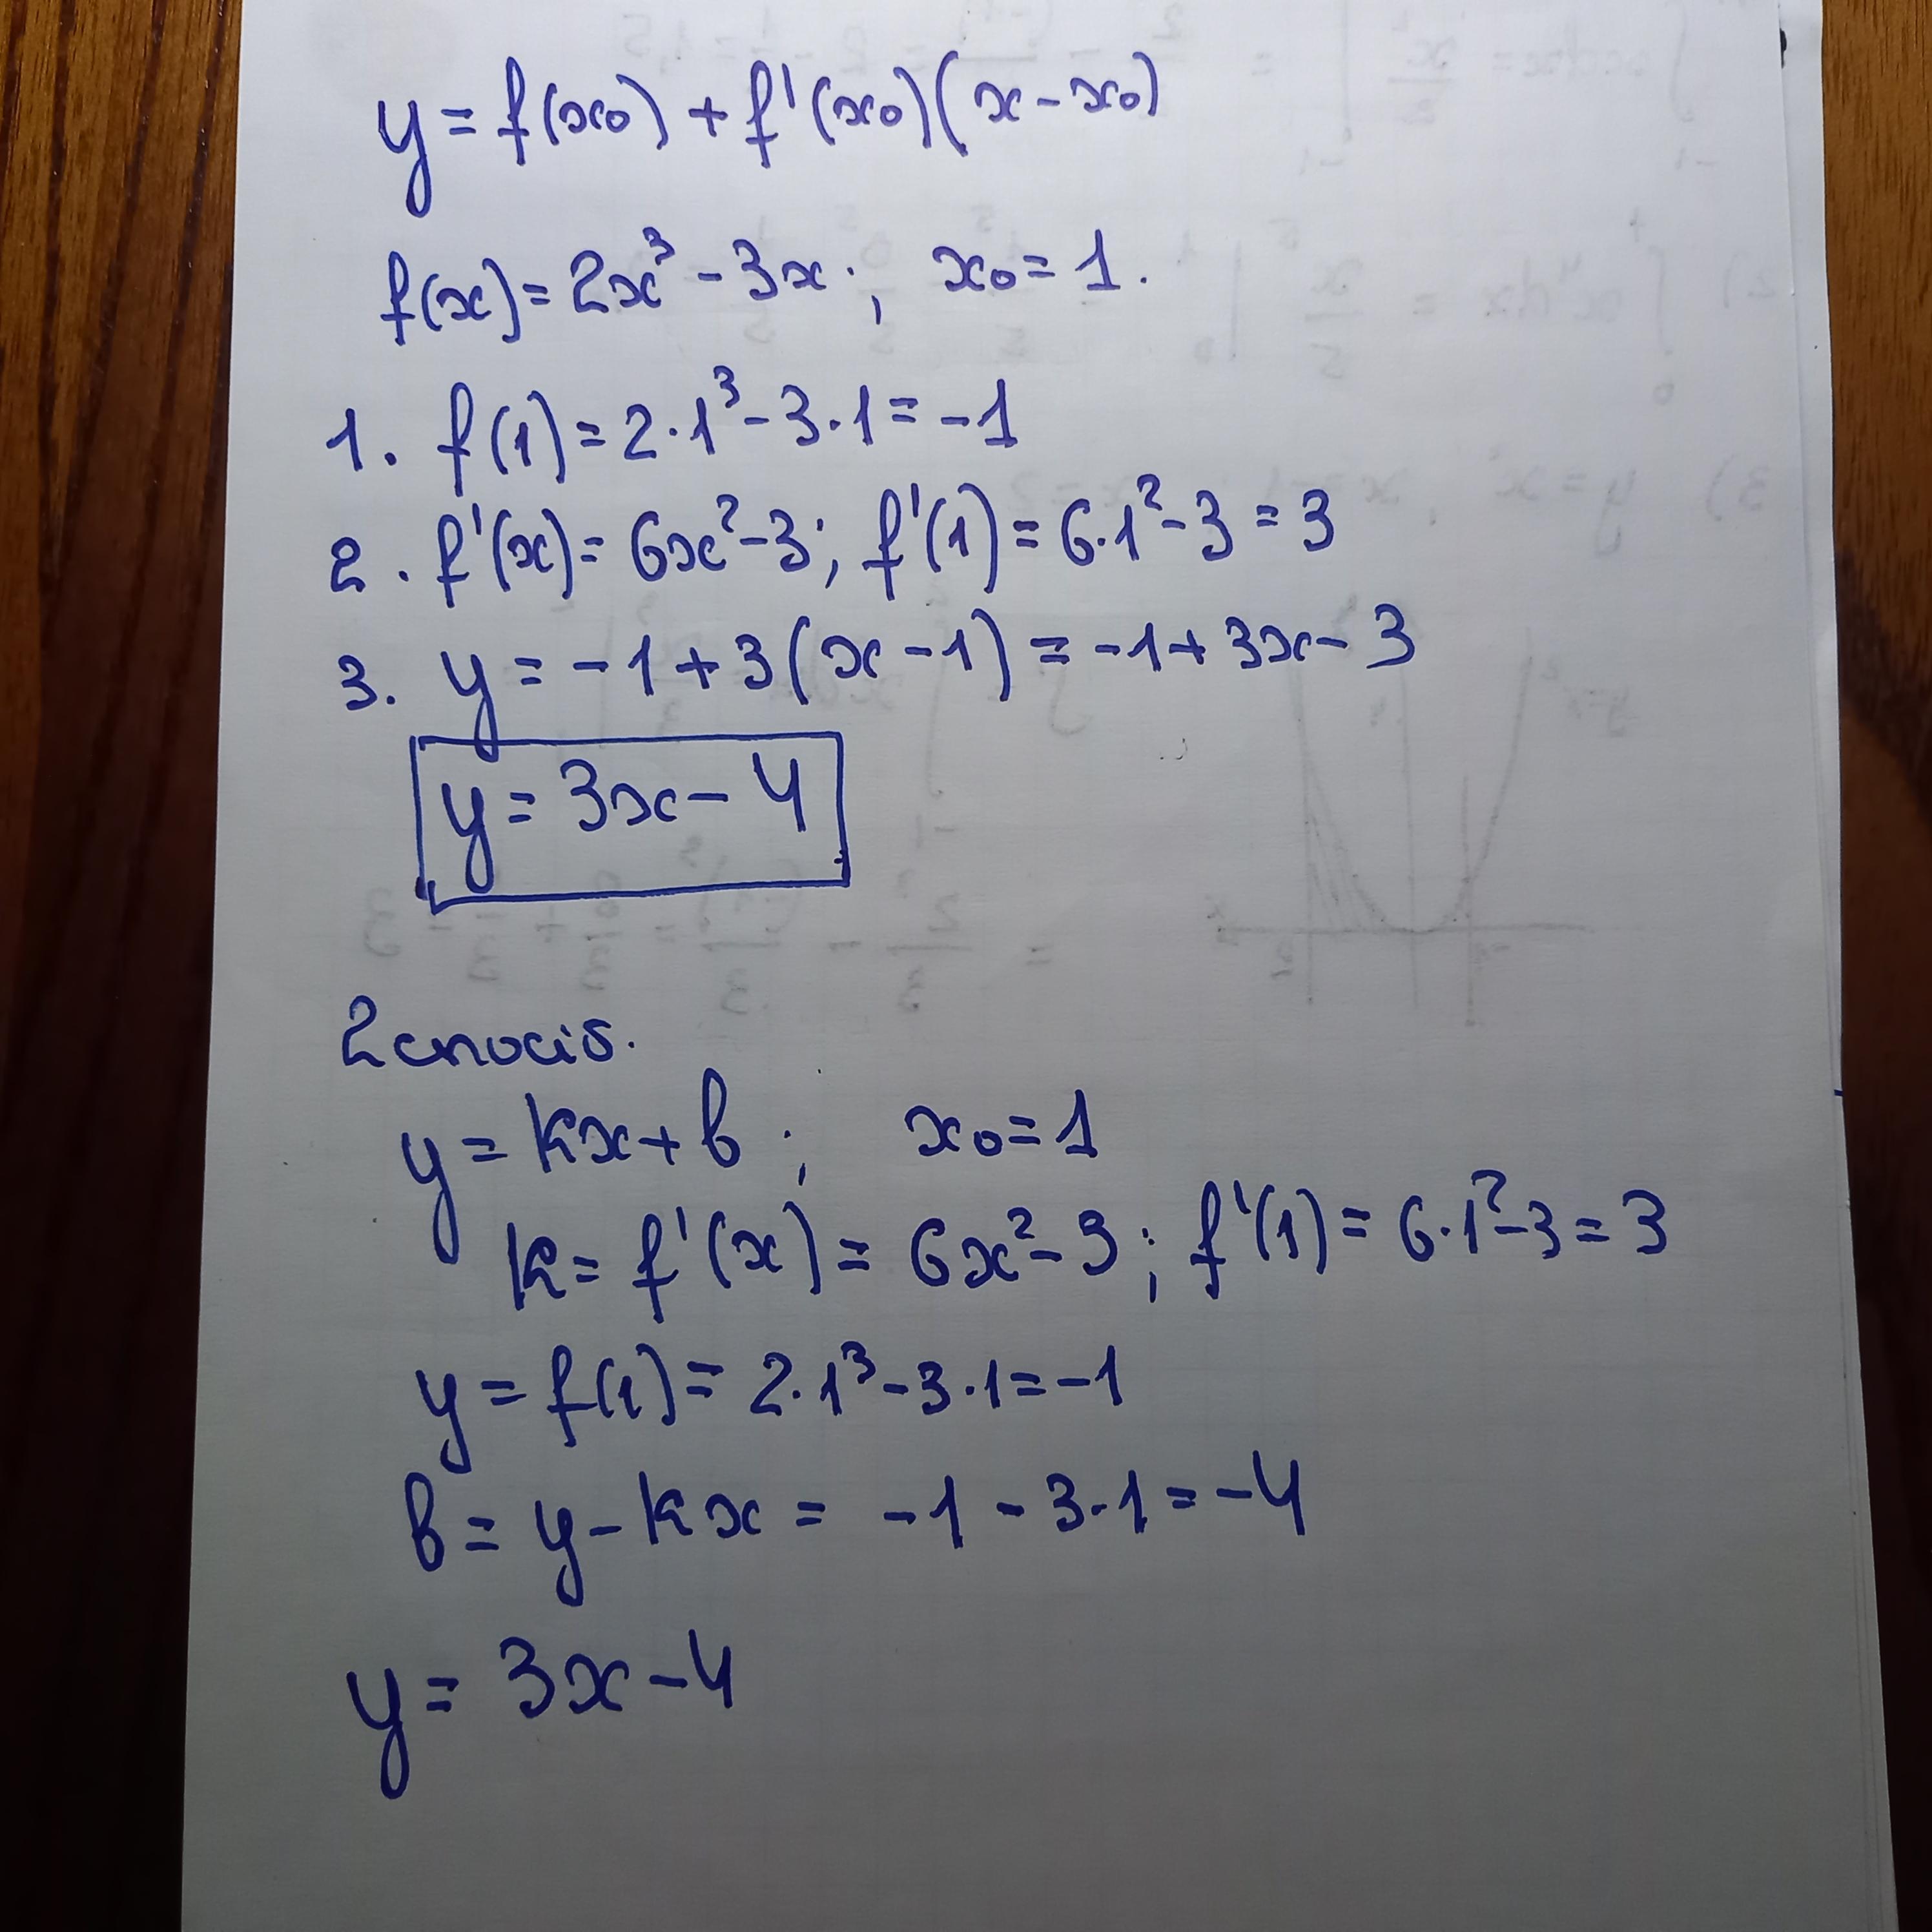 y = f(x₀) + f'(x₀)(x - x₀)
f(x) = 2x³ - 3x ; x₀ = 1.
1. f(1) = 2·1³ - 3·1 = -1
2. f'(x) = 6x² - 3; f'(1) = 6·1² - 3 = 3
3. y = -1 + 3(x - 1) = -1 + 3x - 3
y = 3x - 4
2 спосіб.
y = kx + b ; x₀ = 1
k = f'(x) = 6x² - 3; f'(1) = 6·1² - 3 = 3
y = f(1) = 2·1³ - 3·1 = -1
b = y - kx = -1 - 3·1 = -4
y = 3x - 4